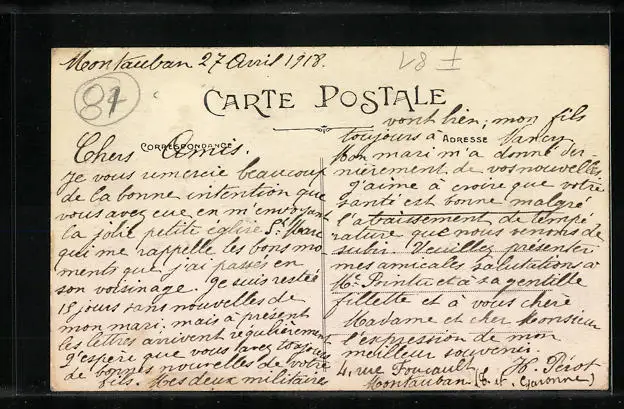 Montauban 27 Avril 1918.
81
CARTE POSTALE
CORRESPONDANCE
Chers Amis.
Je vous remercie beaucoup
de la bonne intention que
vous avez eue en m'envoyant
la jolie petite église St Marc
qui me rappelle les bons mo-
ments que j'ai passés en
son voisinage. Je suis restée
15 jours sans nouvelles de
mon mari, mais à présent
les lettres arrivent régulièrement
J'espère que vous avez toujours
de bonnes nouvelles de votre
fils. Mes deux militaires
vont bien; mon fils
toujours à Nancy
ADRESSE
Mon mari m'a donné der-
nièrement de vos nouvelles
J'aime à croire que votre
santé est bonne malgré
l'abaissement de tempé-
rature que nous venons de
subir. Veuillez présenter
mes amicales salutations à
Me et à sa gentille
fillette et à vous chère
Madame et cher Monsieur
l'expression de mon
meilleur souvenir.
4, rue Foucault H. Pérot
Montauban (T. et Garonne)